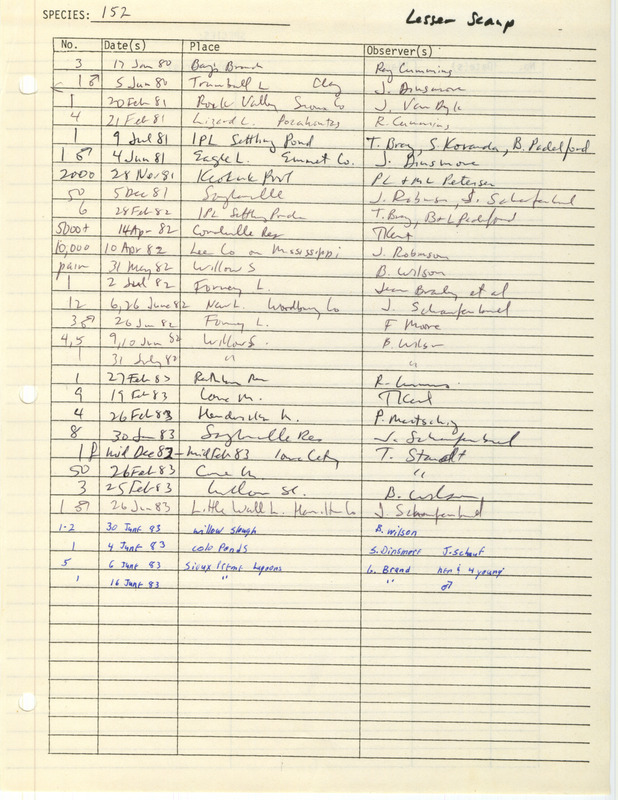 SPECIES: 152 Lesser Scaup
No. Date(s) Place Observer(s)
3 17 Jan 80 Bays Branch Ray Cummins
1 ♂ 5 Jun 80 Trumbull L Clay J. Dinsmore
1 20 Feb 81 Rock Valley Sioux Co J. Van Dyk
4 21 Feb 81 Lizard L. Pocahontas R. Cummins
1 9 Jul 81 IPL Settling Pond T. Bray, S. Kovanda, B. Padelford
1 ♂ 4 Jun 81 Eagle L. Emmet Co. J. Dinsmore
2000 28 Nov 81 Keokuk Pool PL & ML Petersen
50 5 Dec 81 Saylorville J. Robinson, J. Schaufenbuel
6 28 Feb 82 IPL Settling Ponds T. Bray, B & L Padelford
5000+ 14 Apr 82 Coralville Res TKent
10,000 10 Apr 82 Lee Co on Mississippi J. Robinson
pair 31 May 82 Willow S B. Wilson
1 2 Jul 82 Forney L. et al
12 6, 26 June 82 New L. Woodbury Co J. Schaufenbuel
3 ♂ 26 Jun 82 Forney L. F Moore
4,5 9,10 Jun 82 Willow S. B. Wilson
1 31 July 82 " "
1 27 Feb 83 Rathbun R. Cummins
9 19 Feb 83 TKent
4 26 Feb 83 P. Martsching
8 30 Jan 83 Saylorville Res J. Schaufenbuel
1 Mid Dec 82 - Mid Feb 83 Iowa City T. Staudt
50 26 Feb 83 "
3 25 Feb 83 Willow Sl. B. Wilson
1 ♂ 26 Jun 83 Little Wall L. Hamilton Co J. Schaufenbuel
1-2 30 June 83 willow slough B. Wilson
1 4 June 83 colo Ponds S. Dinsmore J. Schauf
5 6 June 83 Sioux Lagoons G. Brand hen & 4 young
1 16 June 83 " " ♂